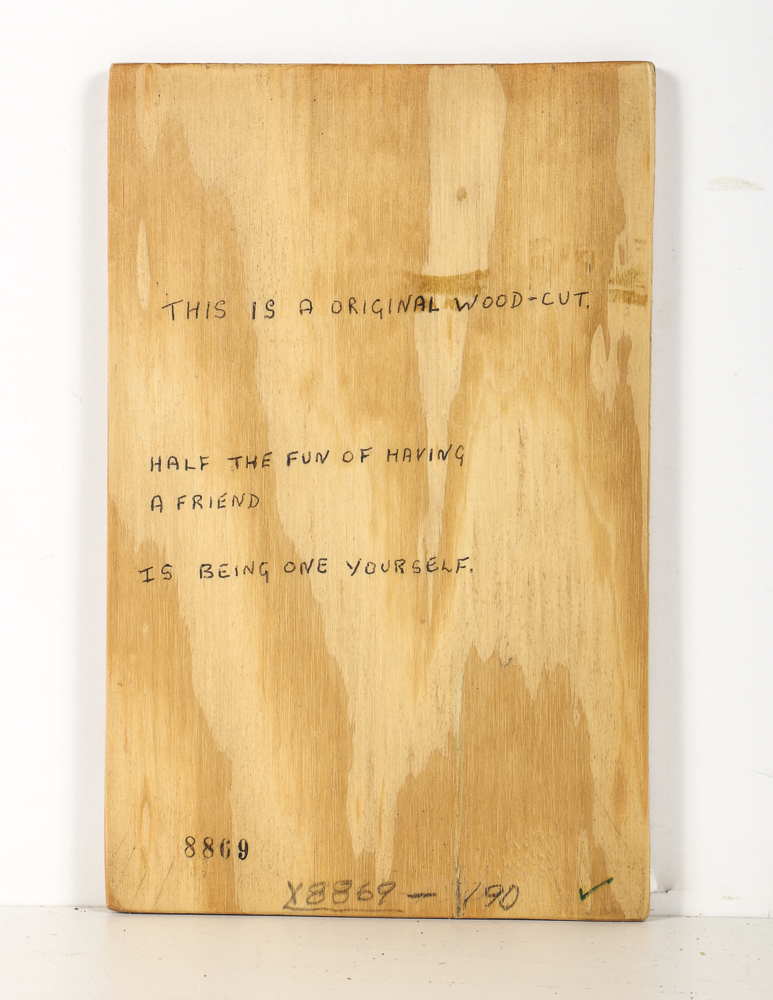 THIS IS A ORIGINAL WOOD-CUT.
HALF THE FUN OF HAVING
A FRIEND
IS BEING ONE YOURSELF.
8869
X8869 — V90